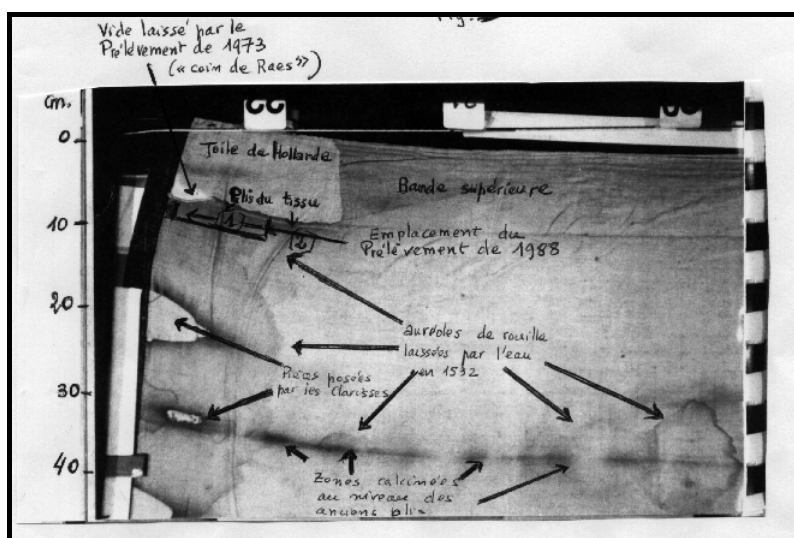 Fig.
Vide laissé par le
Prélèvement de 1973
(« coin de Raes »)
cm.
0
10
20
30
40
22
Toile de Hollande
Bande supérieure
Plis du tissu
1
2
Emplacement du
Prélèvement de 1988
auréoles de rouille
laissées par l'eau
en 1532
Pièces posées
par les Clarisses
Zones calcinées
au niveau des
anciens plis